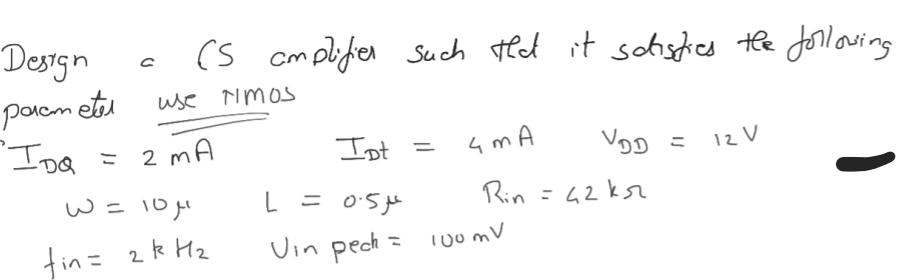 Design a CS amplifier such that it satisfies the following
parameter use NMOS
I_DQ = 2 mA I_Dt = 4 mA V_DD = 12 V
W = 10 μ L = 0.5 μ Rin = 42 kΩ
fin = 2 k Hz Vin peak = 100 mV